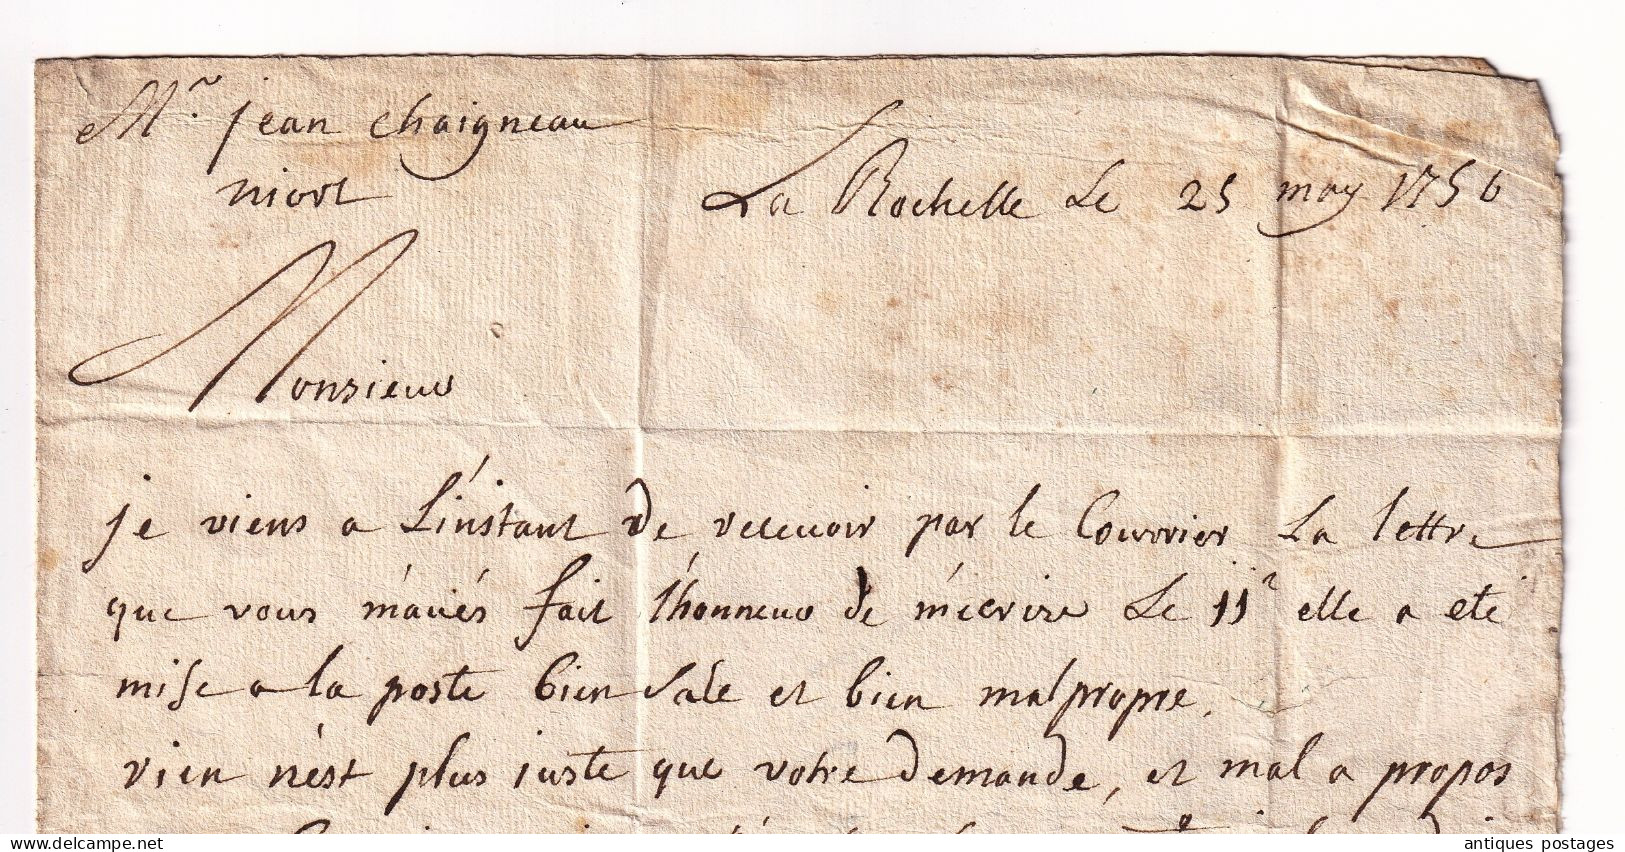 Mr. jean chaigneau
niort
La Rochelle Le 25 may 1756
Monsieur
je viens a L'instant de recevoir par le Courrier La lettre
que vous m'avés fait l'honneur de m'ecrire Le 11e elle a eté
mise a la poste bien sale et bien malpropre,
rien n'est plus juste que votre demande, et mal a propos
antiques postages